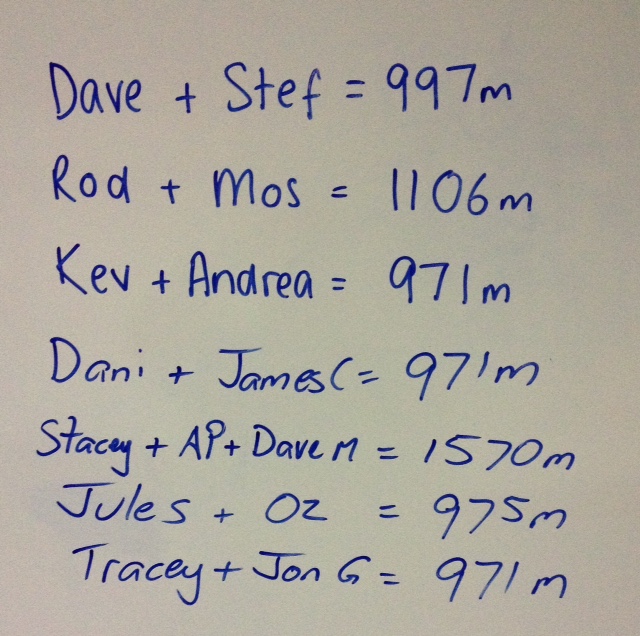 Dave + Stef = 997m
Rod + Mos = 1106m
Kev + Andrea = 971m
Dani + James C = 971m
Stacey + AP + Dave M = 1570m
Jules + Oz = 975m
Tracey + Jon G = 971m